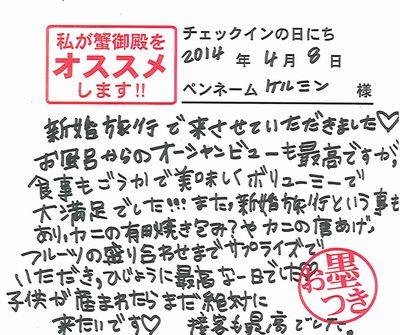 私が蟹御殿を
オススメ
します!!
チェックインの日にち
2014 年 4 月 8 日
ペンネーム ケルミン 様
新婚旅行で来させていただきました♡
お風呂からのオーシャンビューも最高ですが、
食事もごうかで美味しくボリューミーで
大満足でした!!! また、新婚旅行という事も
あり、カニの有田焼き包み？やカニの唐あげ、
フルーツの盛り合わせまでサプライズで
いただき、ひじょうに最高な一日でした♡
子供が産まれたらまた絶対に
来たいです♡ 接客も最高でした。
お墨つき